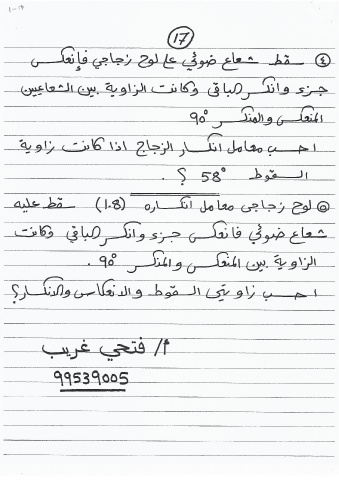 ١٧
④ سقط شعاع ضوئي على لوح زجاجي فإنعكس
جزء وانكسر الباقى وكانت الزاوية بين الشعاعين
المنعكس والمنكسر 90°
احسب معامل انكسار الزجاج اذا كانت زاوية
السقوط 58° ؟ .
⑤ لوح زجاجى معامل انكساره (1.8) سقط عليه
شعاع ضوئي فانعكس جزء وانكسر الباقي وكانت
الزاوية بين المنعكس والمنكسر 90° .
احسب زاويتى السقوط والانعكاس والانكسار؟
أ/ فتحي غريب
99539005